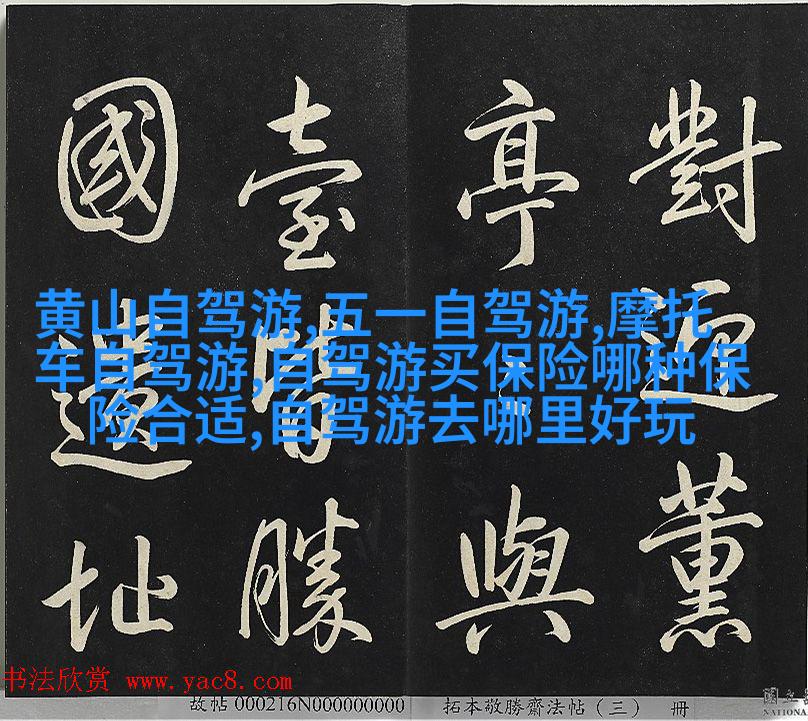 對迎薰
亭與
臺皆勝
國遺址
黄山自驾游,五一自驾游,摩托
车自驾游,自驾游买保险哪种保
险合适,自驾游去哪里好玩
书法欣赏 www.yac8.com
故帖 000216N000000000
拓本敬勝齋法帖（三） 冊
國立
NATIONA